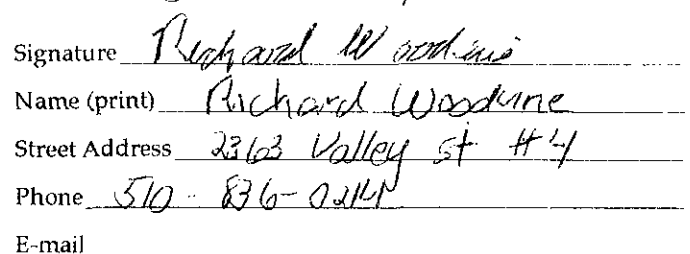 Signature Richard Woodvine
Name (print) Richard Woodvine
Street Address 2363 Valley St #4
Phone 510-836-0214
E-mail